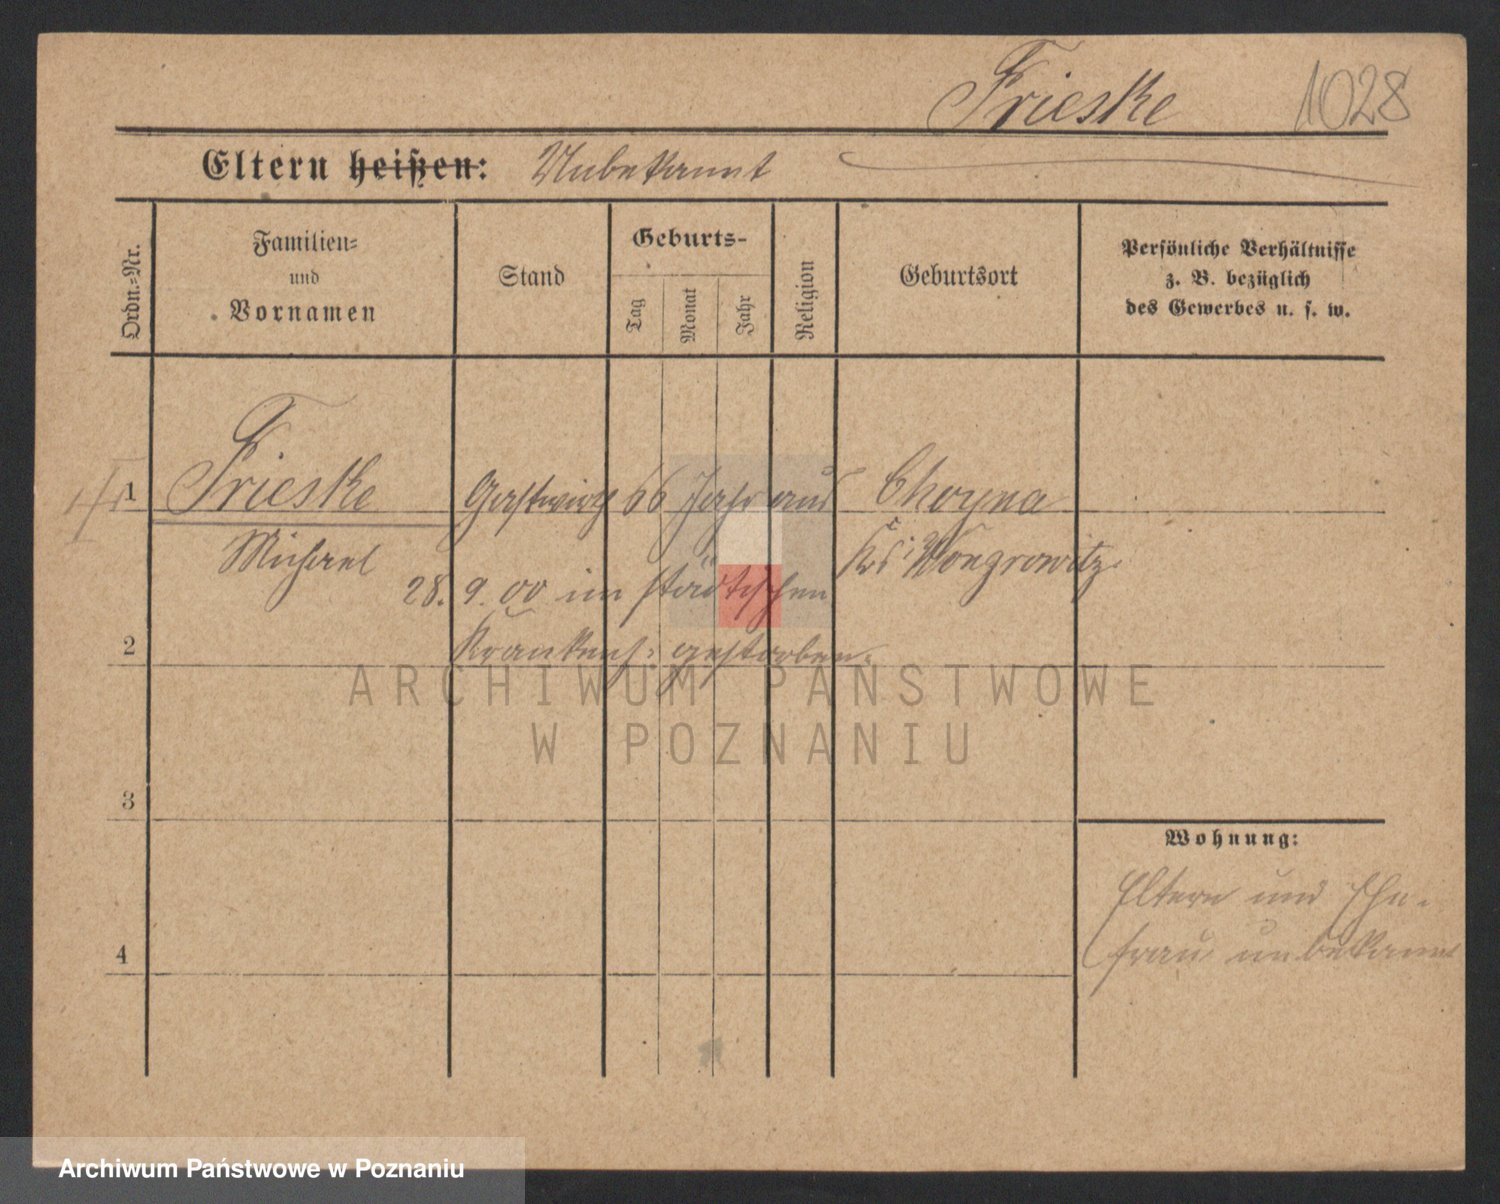 Frieske 1028
Eltern heißen: Unbekannt
Ordn.-Nr.
Familien-
und
Vornamen
Stand
Geburts-
Tag
Monat
Jahr
Religion
Geburtsort
Persönliche Verhältnisse
z. B. bezüglich
des Gewerbes u. s. w.
1 Frieske Gastwirth 66 Jahr aus Choyna
Michael Krs: Wongrowitz.
28. 9. 00 im städtischen
2 Krankenh: gestorben.
ARCHIWUM PAŃSTWOWE
W POZNANIU
3
Wohnung:
Eltern und Ehe-
frau unbekannt
4
Archiwum Państwowe w Poznaniu